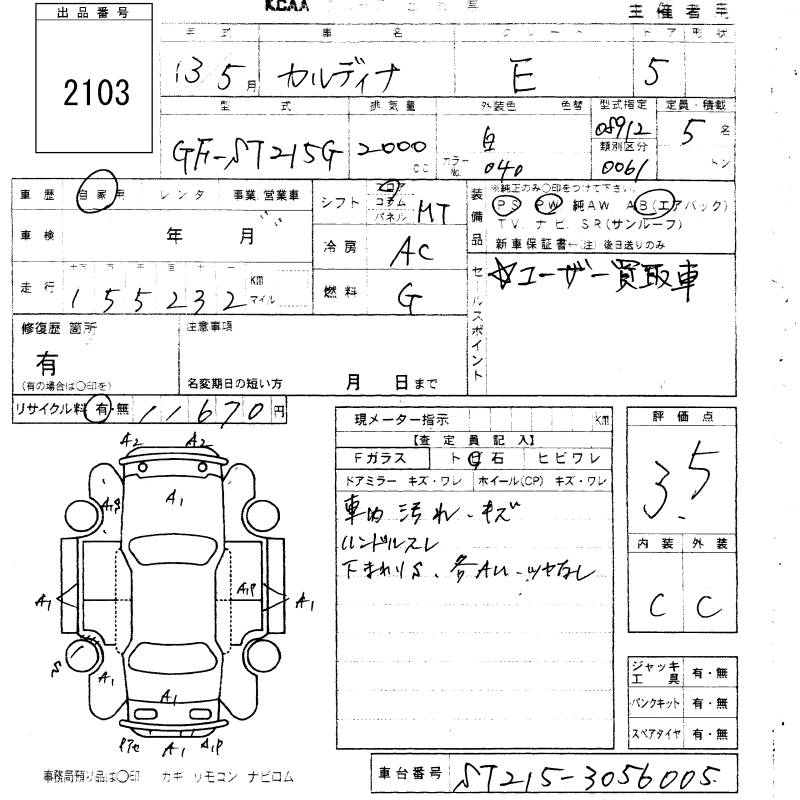 KCAA
主催者用
出品番号
2103
年式 車名 グレード ドア 形状
13 5月 カルディナ E 5
型式 排気量 外装色 色替 型式指定 定員・積載
GF-ST215G 2000 CC 白 08912 5名
カラーNo. 040 類別区分 0061 トン
車歴 自家用 レンタ 事業.営業車
シフト フロア コラム パネル MT
装備品 ※純正のみ○印をつけて下さい
PS PW 純AW AB(エアバック)
TV. ナビ. SR(サンルーフ)
新車保証書←(注) 後日送りのみ
車検 年 月
冷房 AC
走行 155232 KM マイル
燃料 G
セールスポイント ☆ユーザー買取車
修復歴 箇所
有
(有の場合は○印を)
注意事項
名変期日の短い方 月 日まで
リサイクル料 有・無 11670円
現メーター指示 KM
【査定員記入】
Fガラス ト飛石 ヒビワレ
ドアミラー キズ・ワレ ホイール(CP) キズ・ワレ
車内汚れ・キズ
ハンドルスレ
下まわりS、各AU・ツヤなし
評価点
3.5
内装 外装
C C
A2 A2
A1
A1P
A1P
A1 A1
S A1 A1
A1 A1P
ジャッキ工具 有・無
パンクキット 有・無
スペアタイヤ 有・無
事務局預り品は○印 カギ リモコン ナビロム
車台番号 ST215-3056005